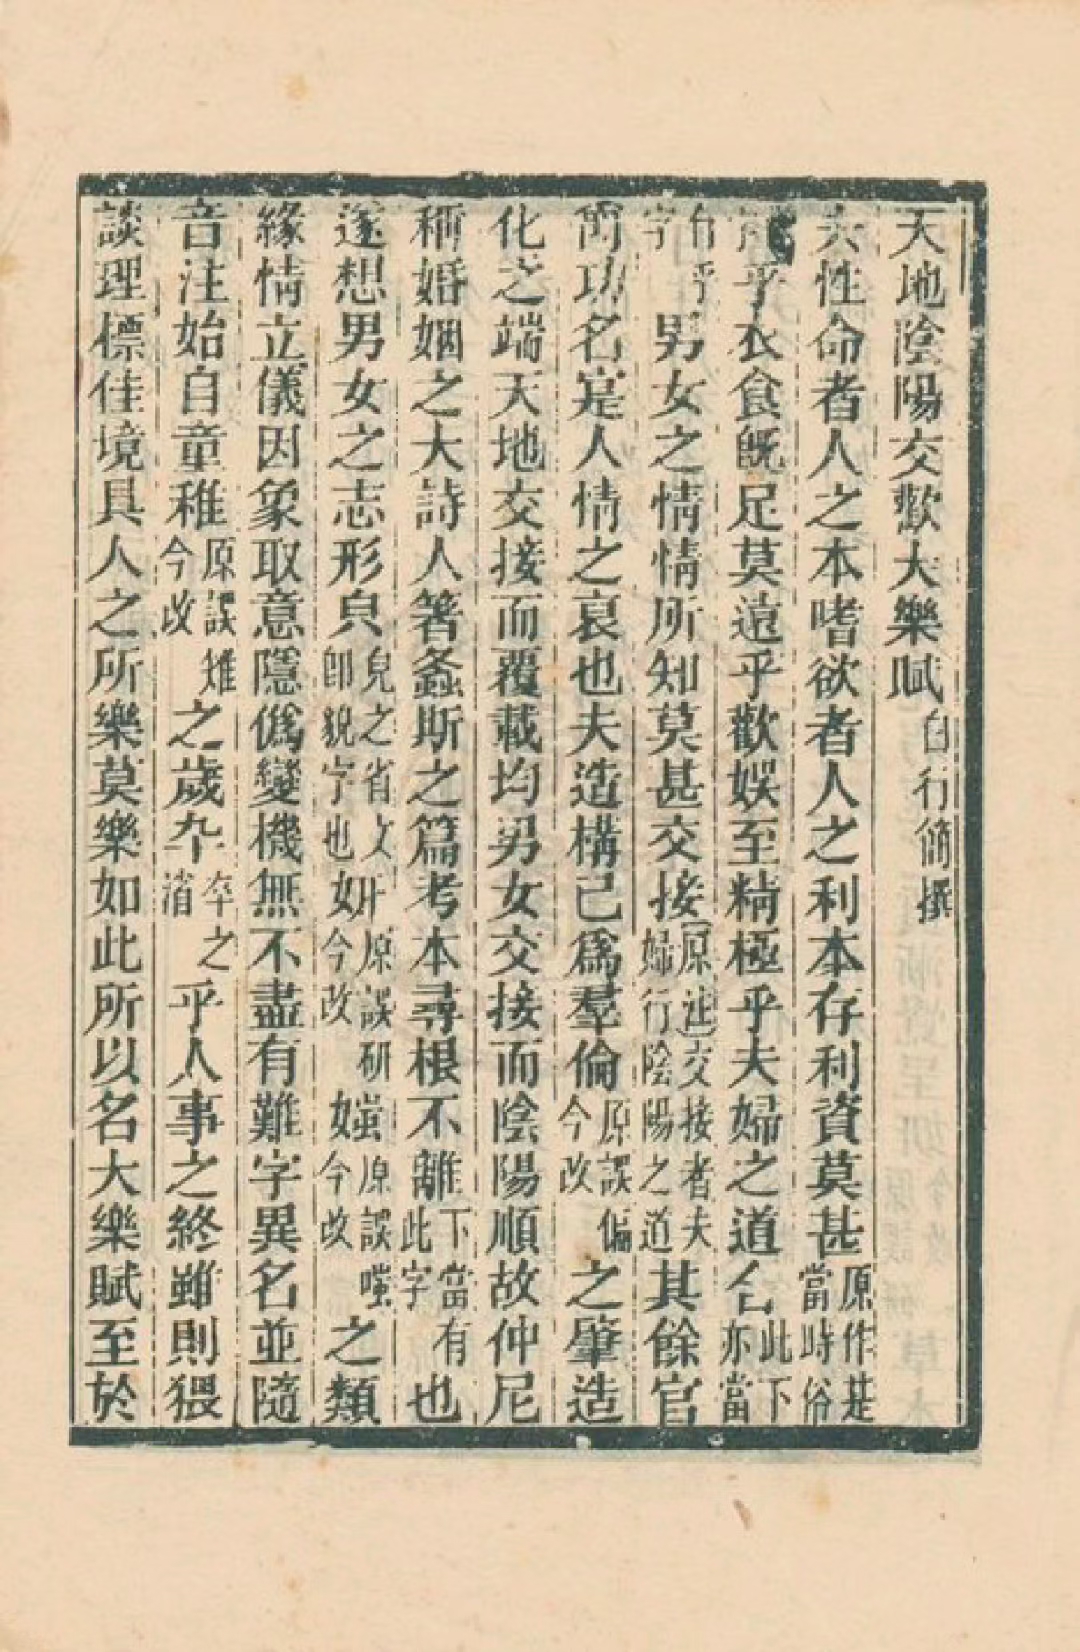 天地陰陽交歡大樂賦白行簡撰
夫性命者人之本嗜欲者人之利本存利資莫甚原作甚當時俗
乎衣食旣足莫遠乎歡娛至精極乎夫婦之道合此下亦當
有乎字男女之情情所知莫甚交接原迆交接者夫婦行陰陽之道其餘官
爵功名寔人情之衰也夫造構已爲羣倫原誤偏今改之肇造
化之端天地交接而覆載均男女交接而陰陽順故仲尼
稱婚姻之大詩人著螽斯之篇考本尋根不離下當有此字也
遂想男女之志形皃皃之省文卽貌字也妍原誤研今改媸原誤嗤今改之類
緣情立儀因象取意隱僞變機無不盡有難字異名並隨
音注始自童稚原誤雉今改之歲卆卒之省乎人事之終雖則猥
談理標佳境具人之所樂莫樂如此所以名大樂賦至於